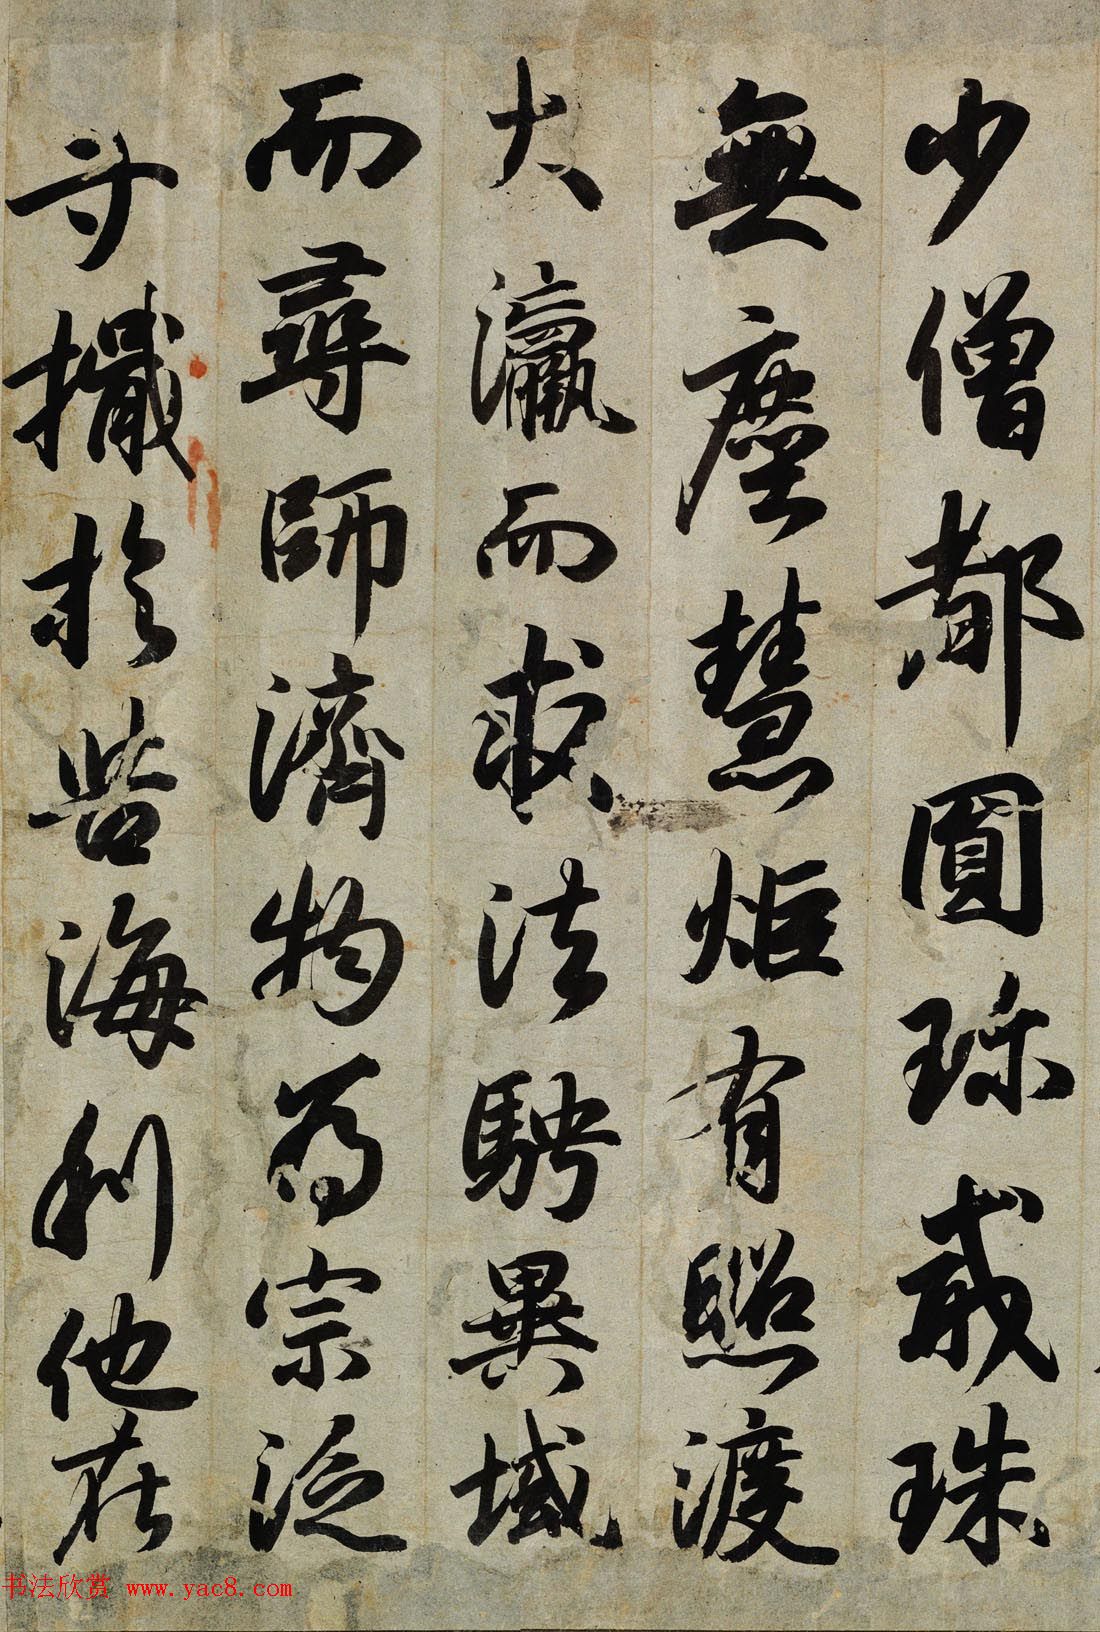 少僧都圓珎戒珠
無塵慧炬有照渡
大瀛而求法騁異域
而尋師濟物為宗泛
寸櫼於苦海利他在
书法欣赏 www.yac8.com